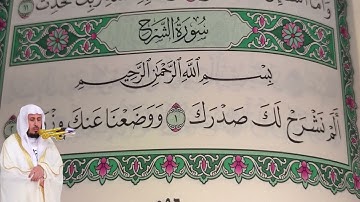 وَأَمَّا رَبِّكَ فَحَدِّثْ ١١
سُورَةُ الشَّرْحِ
بِسْمِ ٱللَّهِ ٱلرَّحْمَٰنِ ٱلرَّحِيمِ
أَلَمْ نَشْرَحْ لَكَ صَدْرَكَ ١ وَوَضَعْنَا عَنكَ